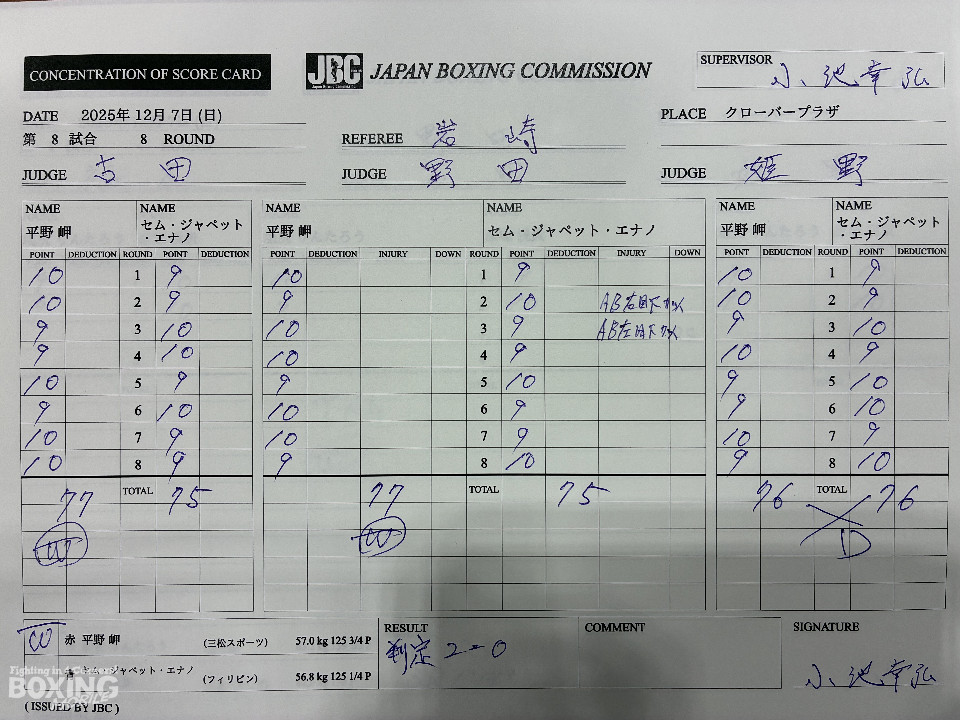 CONCENTRATION OF SCORE CARD
JBC JAPAN BOXING COMMISSION
SUPERVISOR 小池幸弘
DATE 2025年 12月 7日 (日)
PLACE クローバープラザ
第 8 試合 8 ROUND
REFEREE 岩崎
JUDGE 古田
JUDGE 野田
JUDGE 姫野
NAME NAME NAME NAME NAME NAME
平野 岬 セム・ジャペット・エナノ 平野 岬 セム・ジャペット・エナノ 平野 岬 セム・ジャペット・エナノ
POINT DEDUCTION ROUND POINT DEDUCTION POINT DEDUCTION INJURY DOWN ROUND POINT DEDUCTION INJURY DOWN POINT DEDUCTION ROUND POINT DEDUCTION
10 1 9 10 1 9 10 1 9
10 2 9 9 2 10 AB右目下カット 10 2 9
9 3 10 10 3 9 AB左目下カット 9 3 10
9 4 10 10 4 9 10 4 9
10 5 9 9 5 10 9 5 10
9 6 10 10 6 9 9 6 10
10 7 9 10 7 9 10 7 9
10 8 9 9 8 10 9 8 10
77 TOTAL 75 77 TOTAL 75 76 TOTAL 76
W W D
W 赤 平野 岬 (三松スポーツ) 57.0 kg 125 3/4 P
セム・ジャペット・エナノ (フィリピン) 56.8 kg 125 1/4 P
RESULT 判定 2-0
COMMENT
SIGNATURE 小池幸弘
BOXING
( ISSUED BY JBC )